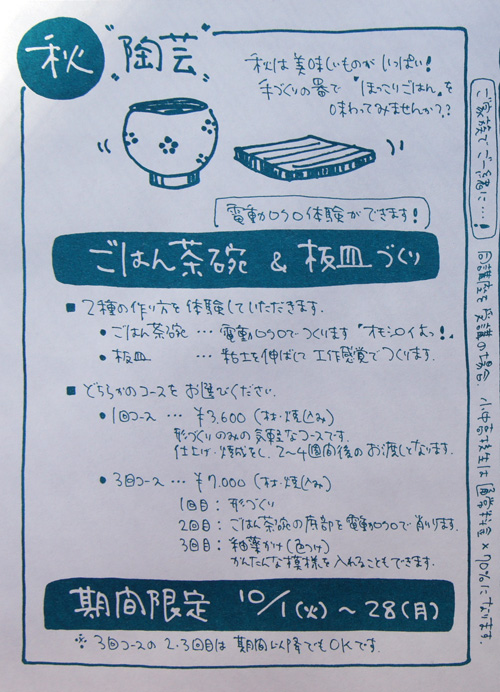 秋 "陶芸"
秋は美味しいものがいっぱい!
手づくりの器で『ほっこりごはん』を
味わってみませんか??
電動ロクロ体験ができます!
ごはん茶碗 & 板皿づくり
■ 2種の作り方を体験していただきます.
• ごはん茶碗 … 電動ロクロでつくります『オモシロイよっ!』
• 板皿 … 粘土を伸ばして工作感覚でつくります.
■ どちらかのコースをお選びください.
• 1回コース … ¥3,600 (材・焼込み)
形づくりのみの気軽なコースです.
仕上げ・焼成をし、2〜4週間後のお渡しとなります.
• 3回コース … ¥7,000 (材・焼込み)
1回目 : 形づくり
2回目 : ごはん茶碗の底部を電動ロクロで削ります.
3回目 : 釉薬がけ (色つけ)
かんたんな模様を入れることもできます.
期間限定 10/1 (火) 〜 28 (月)
※ 3回コースの2・3回目は期間以降でもOKです.
ご家族でご一緒に…!
同講座を受講の場合、小中高校生は通常料金×70%になります.